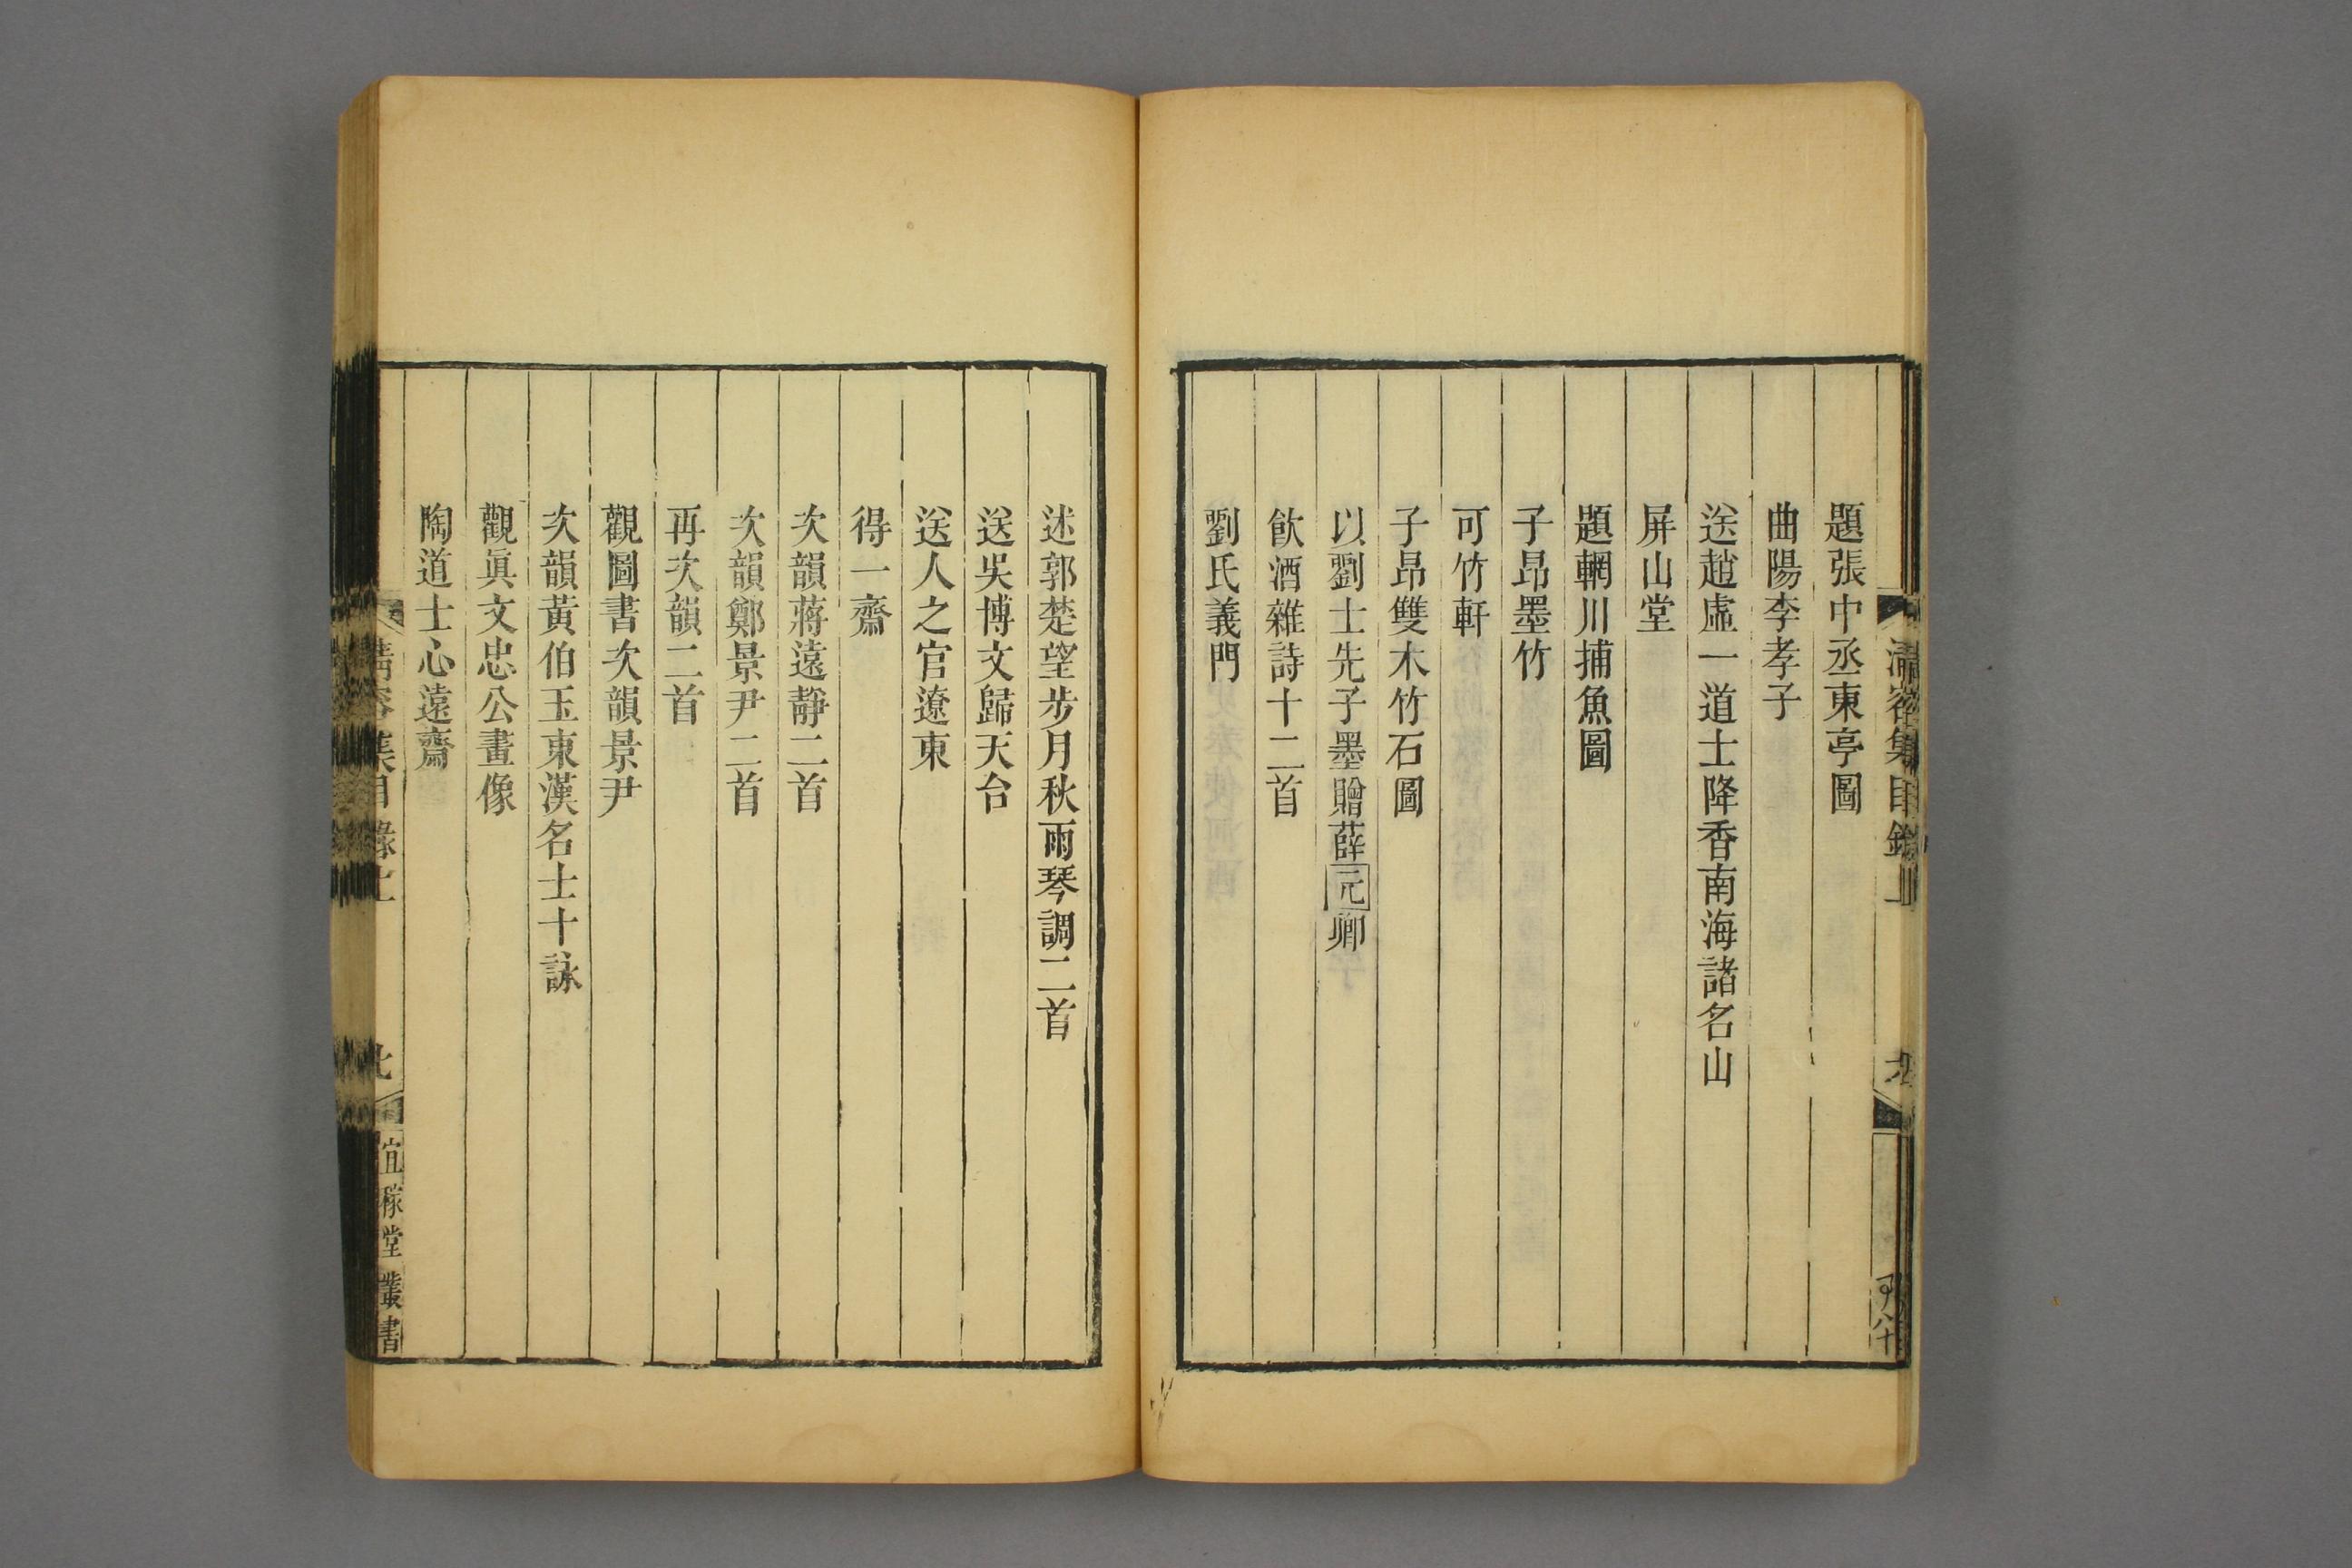 題張中丞東亭圖
曲陽李孝子
送趙虛一道士降香南海諸名山
屏山堂
題輞川捕魚圖
子昂墨竹
可竹軒
子昂雙木竹石圖
以劉士先子墨贈薛元卿
飲酒雜詩十二首
劉氏義門
述郭楚望步月秋雨琴調二首
送吳博文歸天台
送人之官遼東
得一齋
次韻蔣遠靜二首
次韻鄭景尹二首
再次韻二首
觀圖書次韻景尹
次韻黃伯玉東漢名士十詠
觀眞文忠公畫像
陶道士心遠齋
清容集目錄上
宜稼堂叢書